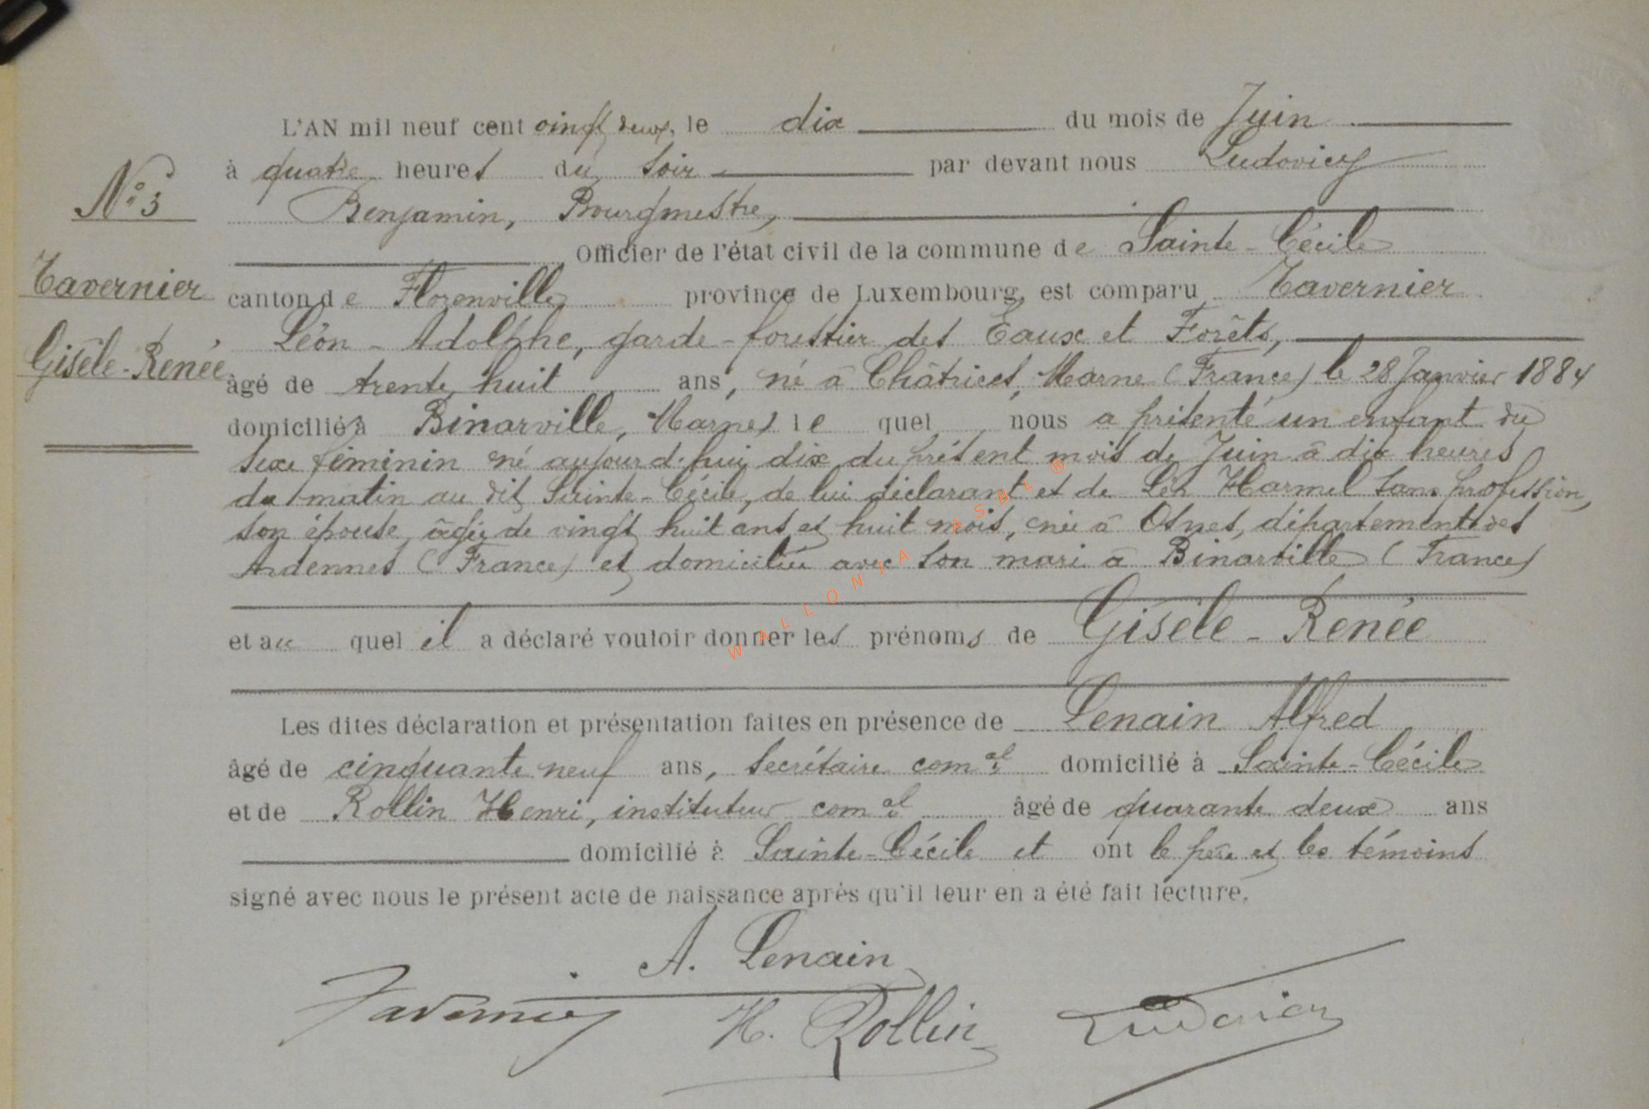 L'AN mil neuf cent vingt deux, le dix du mois de Juin
à quatre heures du soir par devant nous Ludovicy
N° 3
Benjamin, Bourgmestre,
Officier de l'état civil de la commune de Sainte-Cécile
Tavernier
canton de Florenville province de Luxembourg, est comparu Tavernier
Léon-Adolphe, garde-forestier des Eaux et Forêts,
Gisèle-Renée
âgé de trente huit ans, né à Châtrices, Marne (France) le 28 Janvier 1884
domicilié à Binarville, Marne, le quel nous a présenté un enfant du
sexe féminin né aujourd'hui dix du présent mois de Juin à dix heures
du matin au dit Sainte-Cécile, de lui déclarant et de Léa Harmel sans profession,
son épouse, âgée de vingt huit ans et huit mois, née à Osnes, département des
Ardennes (France) et domiciliée avec son mari à Binarville (France)
et au quel il a déclaré vouloir donner les prénoms de Gisèle-Renée
Les dites déclaration et présentation faites en présence de Lenain Alfred
âgé de cinquante neuf ans, secrétaire com.al domicilié à Sainte-Cécile
et de Rollin Henri, instituteur com.al âgé de quarante deux ans
domicilié à Sainte-Cécile et ont le père et les témoins
signé avec nous le présent acte de naissance après qu'il leur en a été fait lecture.
A. Lenain
Tavernier H. Rollin Ludovicy
WALLONIA ASBL ©